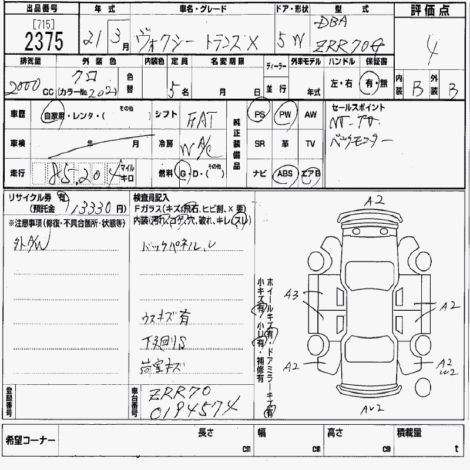 出品番号 年式 車名・グレード ドア・形状 DBA 評価点
[715]
2375 21年 3月 ヴォクシー トランスX 5W ZRR70G 4
排気量 外装色 内装色 定員 名変期限 ディーラー 外車モデル ハンドル 保証書
2000cc クロ (カラーNo.202) 色替 5名 年 月 並行 年 左・右 有・無 内装 B 外装 B
車歴 自家用・レンタ・(その他) シフト FAT 純正装備品 PS PW AW セールスポイント
車検 年 月 冷房 AAC SR 革 TV バックモニター
走行 85,204 マイル キロ 燃料 G・D・(その他) ナビ ABS エアB
リサイクル券 有
(預託金 13330円) 検査員記入
Fガラス(キズ・飛石、ヒビ割、X要)
※注意事項(修復・不具合箇所・状態等) 内装(汚れ・コゲ・穴、破れ、キレ(スレ)
バックパネルU
ウスキズ有
下廻りS
荷室キズ
小キズ有・小U有・補修有
ホイールキズ有・ドアミラーキズ有
A2
A3
A2
A2
A2
AU2
登録番号 車台番号 ZRR70
0194574
希望コーナー 長さ cm 幅 cm 高さ cm 積載量 t